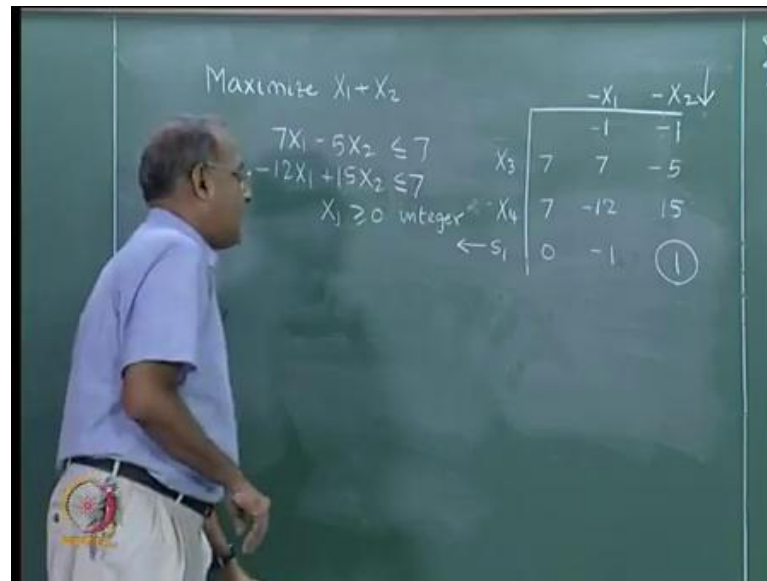 Maximize X1 + X2
7X1 - 5X2 ≤ 7
-12X1 + 15X2 ≤ 7
Xj ≥ 0 integer
-X1 -X2 ↓
-1 -1
X3 7 7 -5
X4 7 -12 15
← S1 0 -1 1